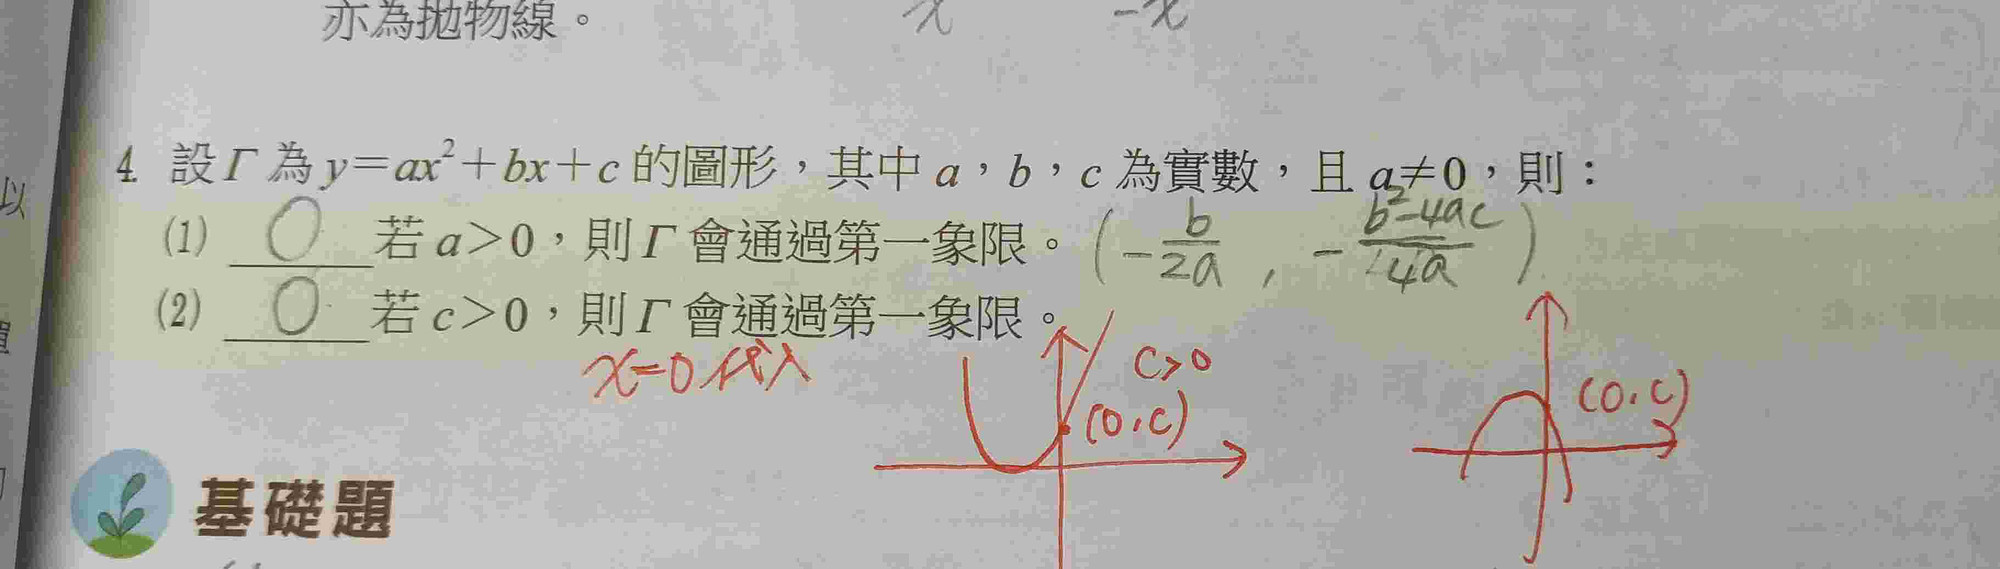 亦為拋物線。
x -x
4. 設Γ為y=ax²+bx+c的圖形，其中a，b，c為實數，且a≠0，則：
(1) O 若a>0，則Γ會通過第一象限。 (-b/2a , -b²-4ac/4a)
(2) O 若c>0，則Γ會通過第一象限。
x=0代入 c>0 (0,c) (0,c)
基礎題
以